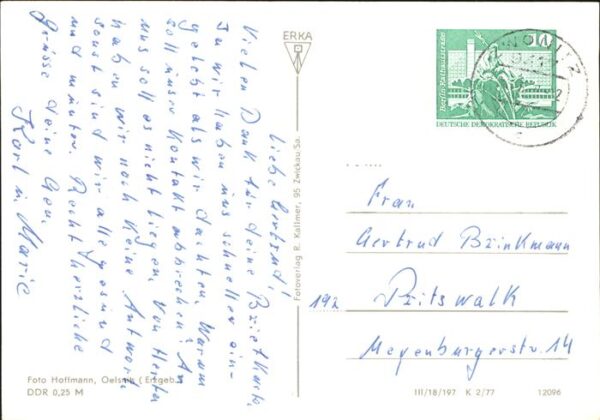 Liebe Gertrud!
Vielen Dank für deine Briefkarte,
Ja wir haben uns schneller ein-
gelebt als wir dachten. Warum
soll unser Kontakt abbrechen? An
uns soll es nicht liegen, Von Herta
haben wir noch keine Antwort
sonst sind wir alle gesund
und munter. Recht herzliche
Grüsse deine
Karl u Marie
Foto Hoffmann, Oelsnitz (Erzgeb.)
DDR 0,25 M
ERKA
Fotoverlag R. Kallmer, 95 Zwickau Sa.
14
Berlin, Rathausstraße
DEUTSCHE DEMOKRATISCHE REPUBLIK
Frau
Gertrud Brinkmann
192 Pritswalk
Meyenburgerstr. 14
III/18/197 K 2/77 12096